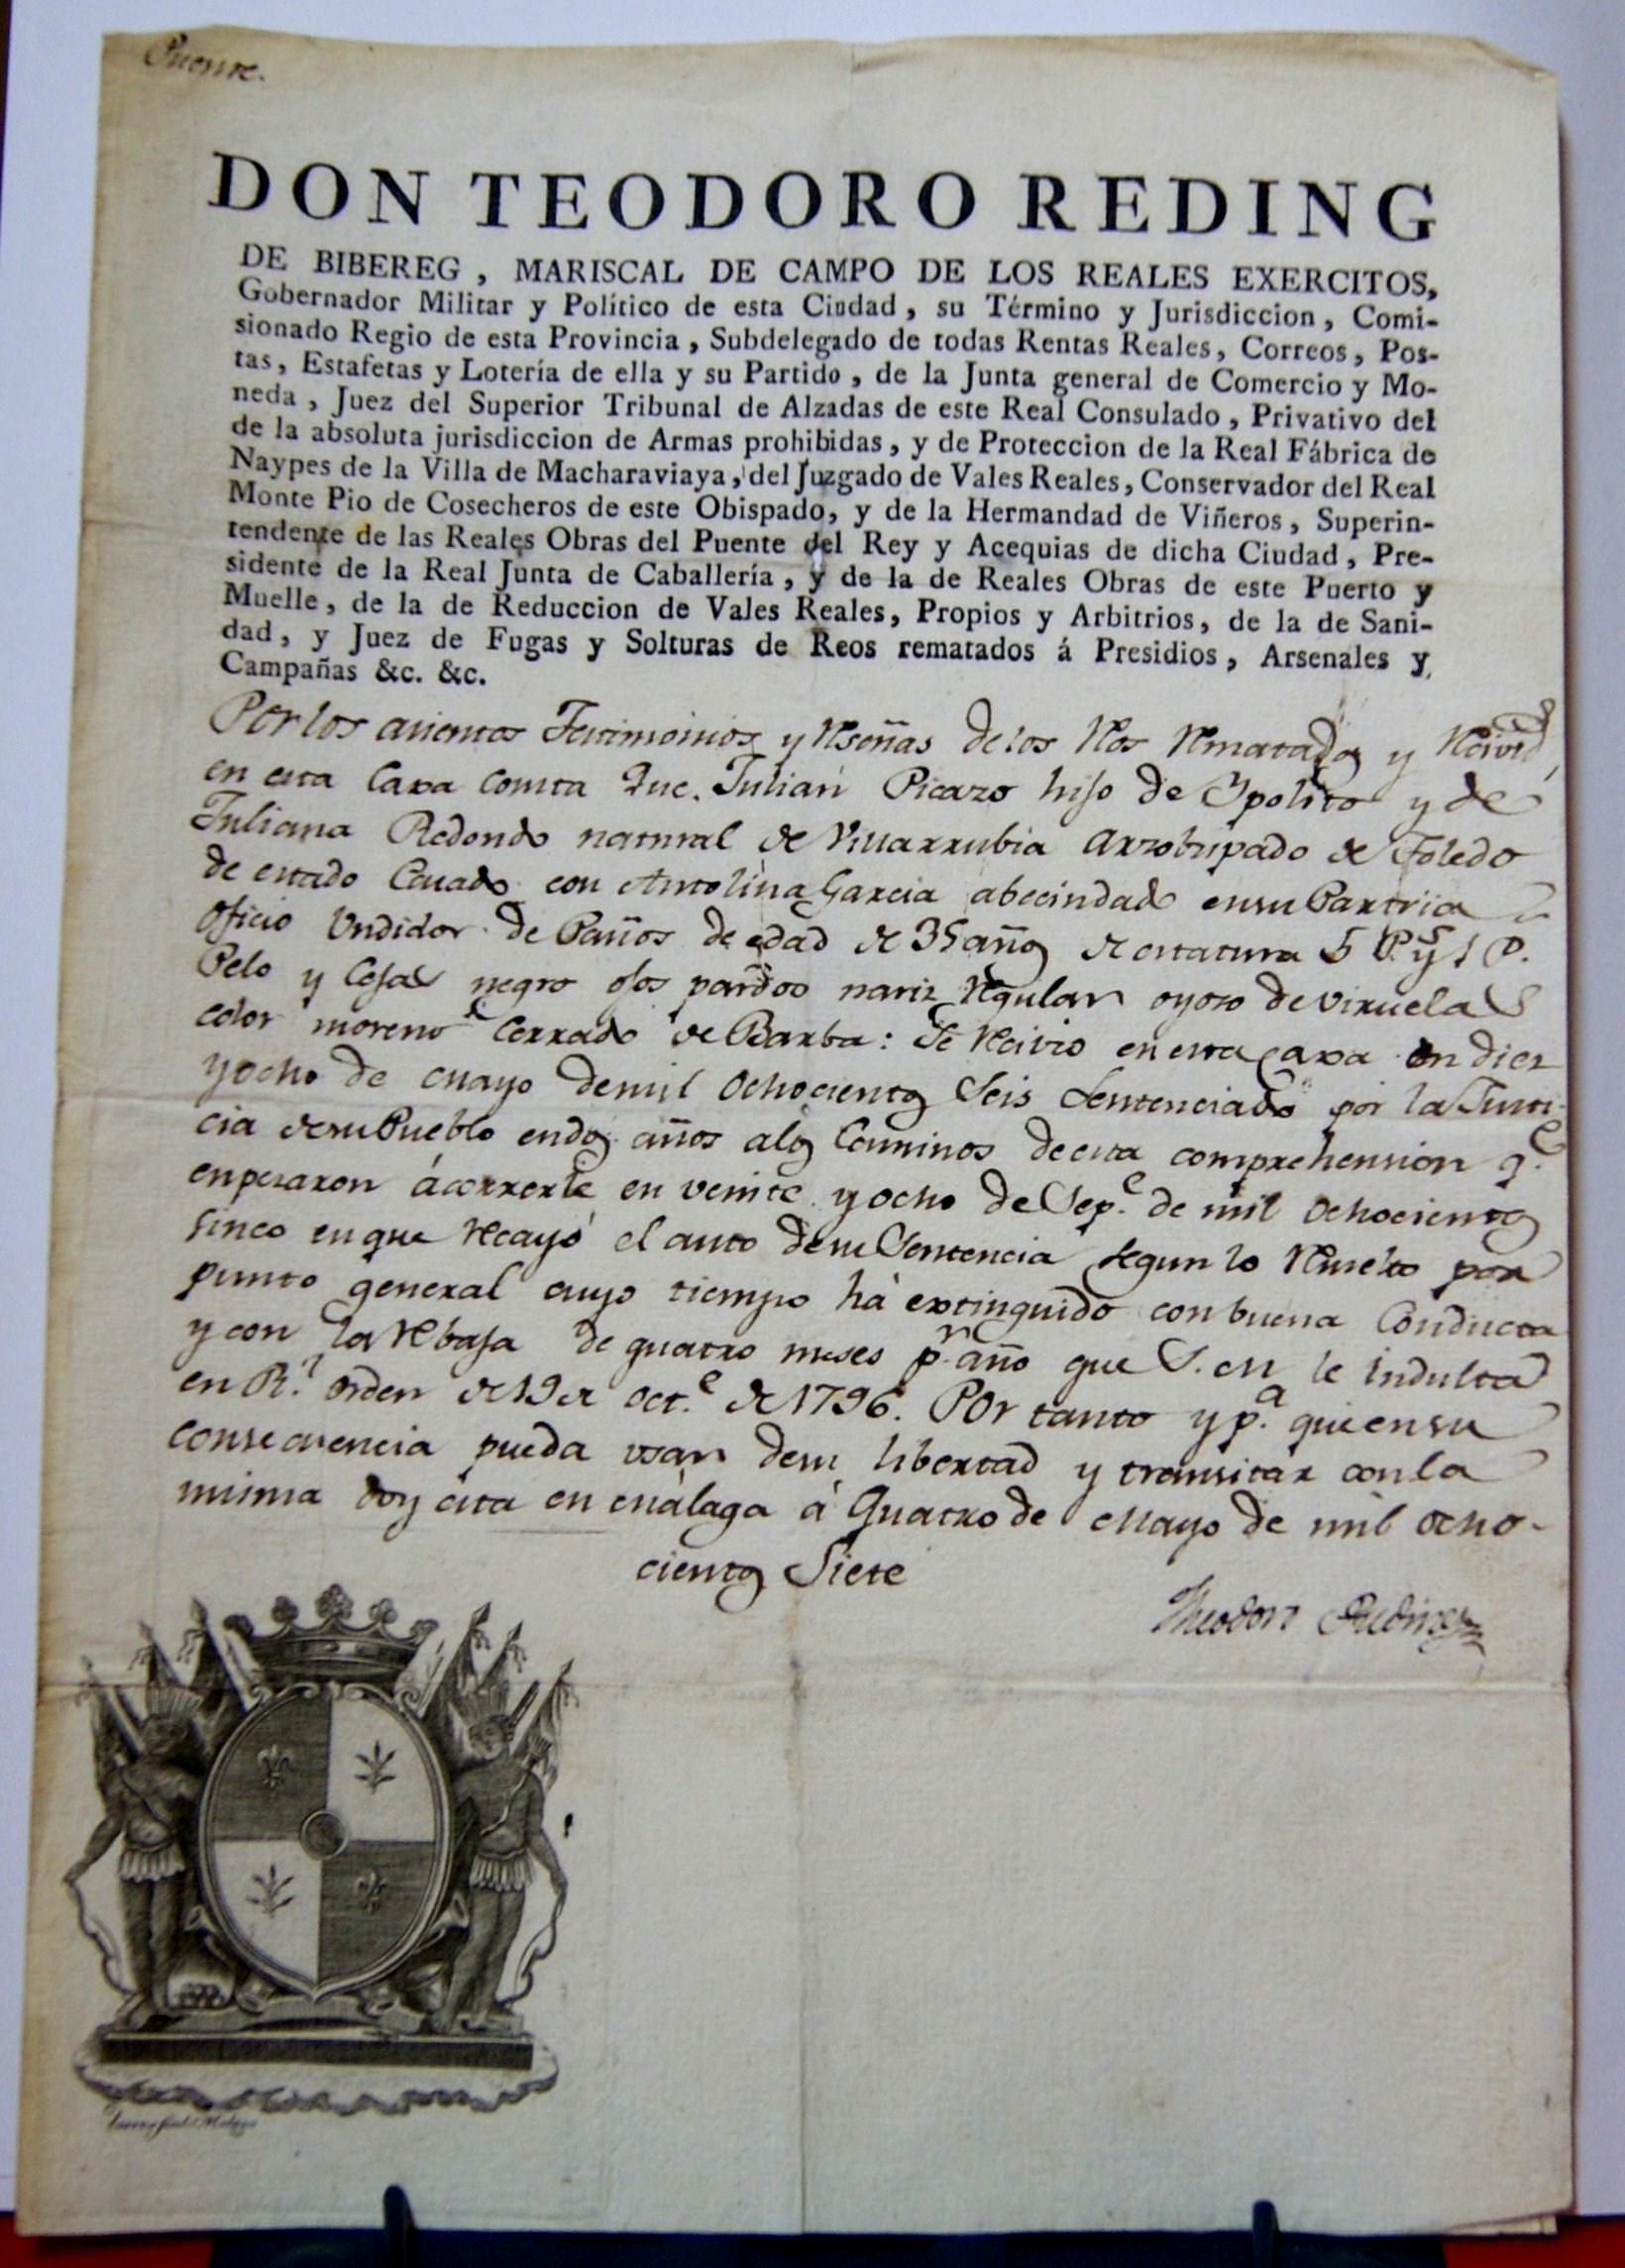 Puente.
DON TEODORO REDING
DE BIBEREG, MARISCAL DE CAMPO DE LOS REALES EXERCITOS,
Gobernador Militar y Político de esta Ciudad, su Término y Jurisdiccion, Comi-
sionado Regio de esta Provincia, Subdelegado de todas Rentas Reales, Correos, Pos-
tas, Estafetas y Lotería de ella y su Partido, de la Junta general de Comercio y Mo-
neda, Juez del Superior Tribunal de Alzadas de este Real Consulado, Privativo del
de la absoluta jurisdiccion de Armas prohibidas, y de Proteccion de la Real Fábrica de
Naypes de la Villa de Macharaviaya, del Juzgado de Vales Reales, Conservador del Real
Monte Pio de Cosecheros de este Obispado, y de la Hermandad de Viñeros, Superin-
tendente de las Reales Obras del Puente del Rey y Acequias de dicha Ciudad, Pre-
sidente de la Real Junta de Caballería, y de la de Reales Obras de este Puerto y
Muelle, de la de Reduccion de Vales Reales, Propios y Arbitrios, de la de Sani-
dad, y Juez de Fugas y Solturas de Reos rematados á Presidios, Arsenales y
Campañas &c. &c.
Por los asientos Testimonios y Reseñas de los Reos Rematados y Recividos
en esta Caxa Consta Que. Julian Picazo hijo de Ypolito y de
Juliana Redondo natural de Villarrubia Arzobispado de Toledo
de estado Casado con Antolina Garcia abecindado en su Partria
Oficio Undidor de Paños de edad de 35 años de estatura 5 P.s y 1 P.
Pelo y Cejas negro ojos pardos nariz Regular oyoso de viruelas
color moreno Cerrado de Barba: Se Recivio en esta Caxa en diez
y ocho de Mayo de mil Ochocientos Seis Sentenciado por la Justi-
cia de su Pueblo en dos años a los Caminos de esta comprehension q.e
enpesaron á correrle en veinte y ocho de Sep.e de mil Ochocientos
Sinco en que Recayó el auto de su Sentencia segun lo Resuelto por
punto general cuyo tiempo há extinguido con buena Conducta
y con la Rebaja de quatro meses p.r año que S. M le indulta
en R.l orden de 19 de Oct.e de 1796. Por tanto y p.a que en su
Consecuencia pueda usar de su libertad y transitar con la
misma doy esta en Málaga á Quatro de Mayo de mil ocho-
cientos Siete
Theodoro Reding